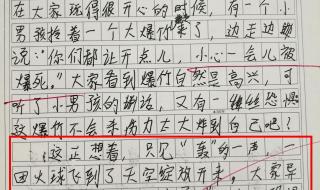 在大家玩得很开心的时候，有一个小
男孩拎着一个大爆竹来了，边走边喊
说："你们都让开点儿，小心一会儿被
爆死。"大家看到爆竹自然是高兴，可
听了小男孩的话，又有一丝丝恐惧
这爆竹不会杀伤力太大炸到自己吧？
这正想着，只见"轰"的一声，一
团火球飞到了天空绽放开来，大家异